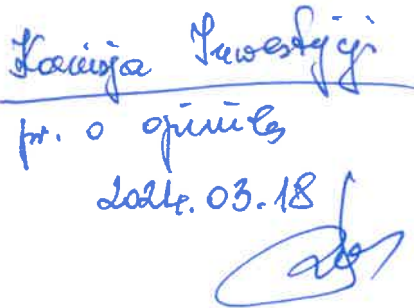 Komisja Inwestycji
pr. o opinię
2024.03.18